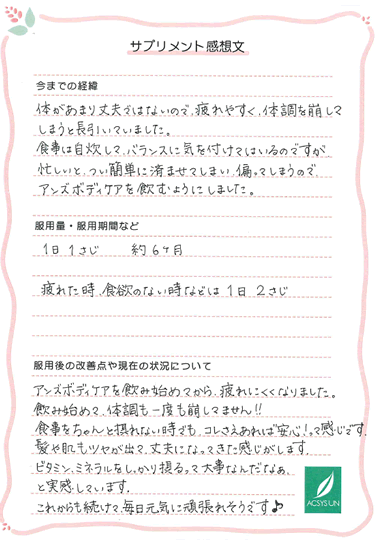 サプリメント感想文
今までの経緯
体があまり丈夫ではないので、疲れやすく、体調を崩して
しまうと長引いていました。
食事は自炊して、バランスに気を付けてはいるのですが、
忙しいと、つい簡単に済ませてしまい、偏ってしまうので、
アンズボディケアを飲むようにしました。
服用量・服用期間など
1日1さじ 約6ヶ月
疲れた時、食欲のない時などは1日2さじ
服用後の改善点や現在の状況について
アンズボディケアを飲み始めてから、疲れにくくなりました。
飲み始めて、体調も一度も崩してません!!
食事をちゃんと摂れない時でも、コレさえあれば安心!って感じです。
髪や肌もツヤが出て、丈夫になってきた感じがします。
ビタミン、ミネラルをしっかり摂るって大事なんだなぁ、
と実感しています。
これからも続けて、毎日元気に頑張れそうです♪
ACSYSUN